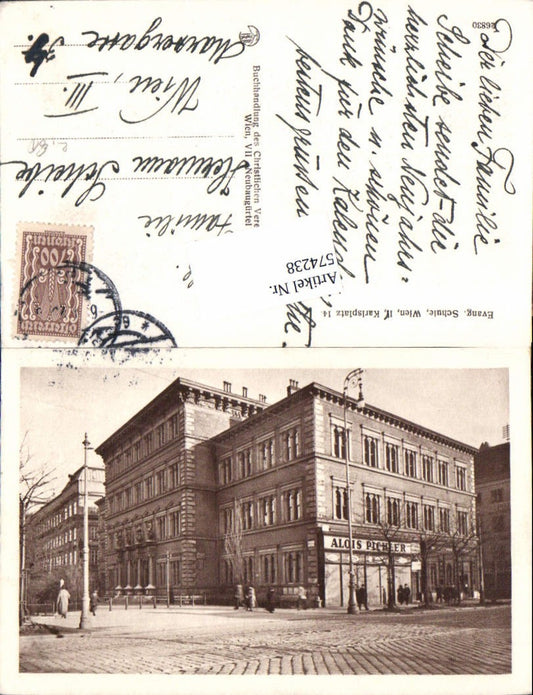 26830
Die lieben Familie
Scheibe sendet die
herzlichsten Neujahrs-
wünsche u. schönen
Dank für den Kalend
Evang. Schule, Wien, IV, Karlsplatz 14
Artikel Nr.
574238
Buchhandlung des Christlichen Vere
Wien, VII Neubaugürtel
Familie
Hermann Scheibe
Wien, III.
Marxergasse
200
ALOIS PICHLER